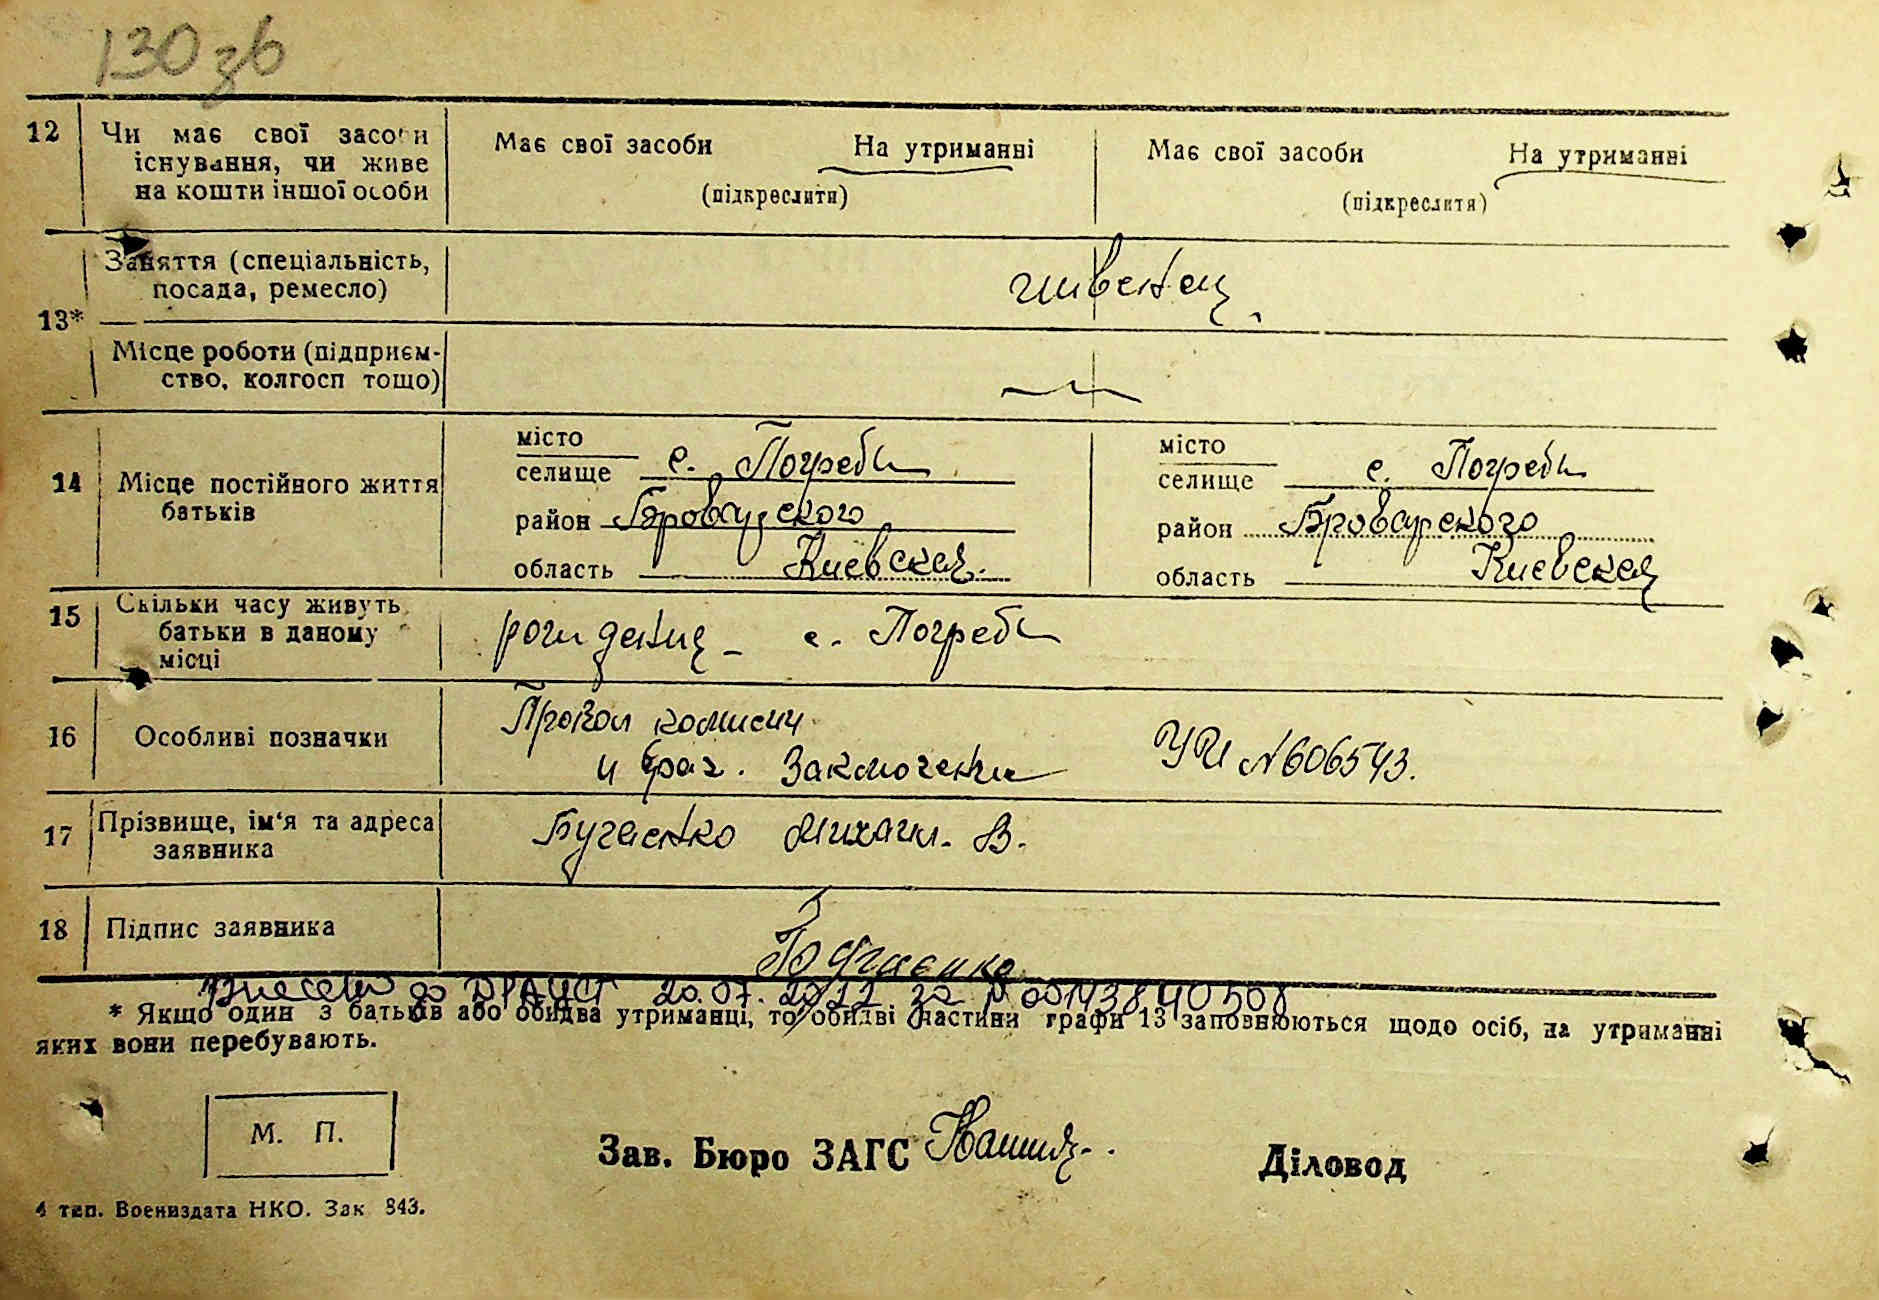 130 зв
12 Чи має свої засоби Має свої засоби На утриманні Має свої засоби На утриманні
існування, чи живе
на кошти іншої особи (підкреслити) (підкреслити)
Заняття (спеціальність,
посада, ремесло)
13*
Місце роботи (підприєм-
ство, колгосп тощо)
місто місто
селище с. Погреби селище с. Погреби
14 Місце постійного життя
батьків
район Броварского район Броварского
область Киевская область Киевская
15 Скільки часу живуть
батьки в даному рождения с. Погреби
місці
16 Особливі позначки комисии УЯИ №606543.
и врач. Заключение
17 Прізвище, ім'я та адреса
заявника Бугаенко Михаил. В.
18 Підпис заявника
Внесено до ДРАЦСГ 20.07.2022 за № 00143840508
* Якщо один з батьків або обидва утриманці, то обидві частини графи 13 заповнюються щодо осіб, на утриманні
яких вони перебувають.
М. П.
Зав. Бюро ЗАГС Діловод
4 тип. Воениздата НКО. Зак 843.